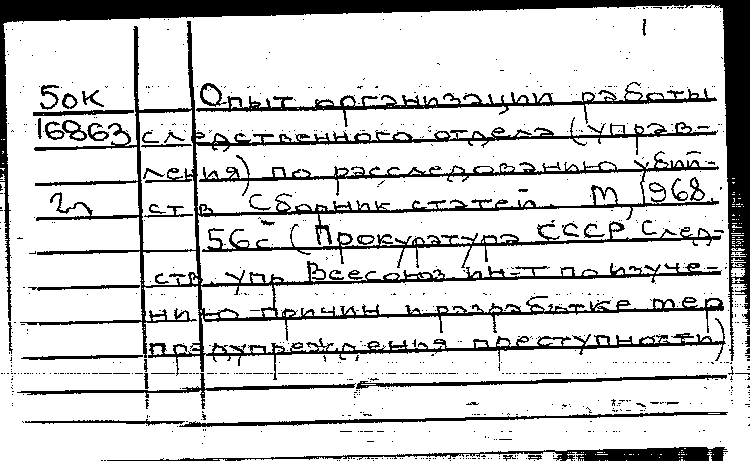 1
БОК Опыт организации работы
16863 следственного отдела (управ-
ления) по расследованию убий-
2л ств Сборник статей. М, 1968.
56с (Прокуратура СССР След-
ств. упр Всесоюз ин-т по изуче-
нию причин и разработке мер
предупреждения преступности)